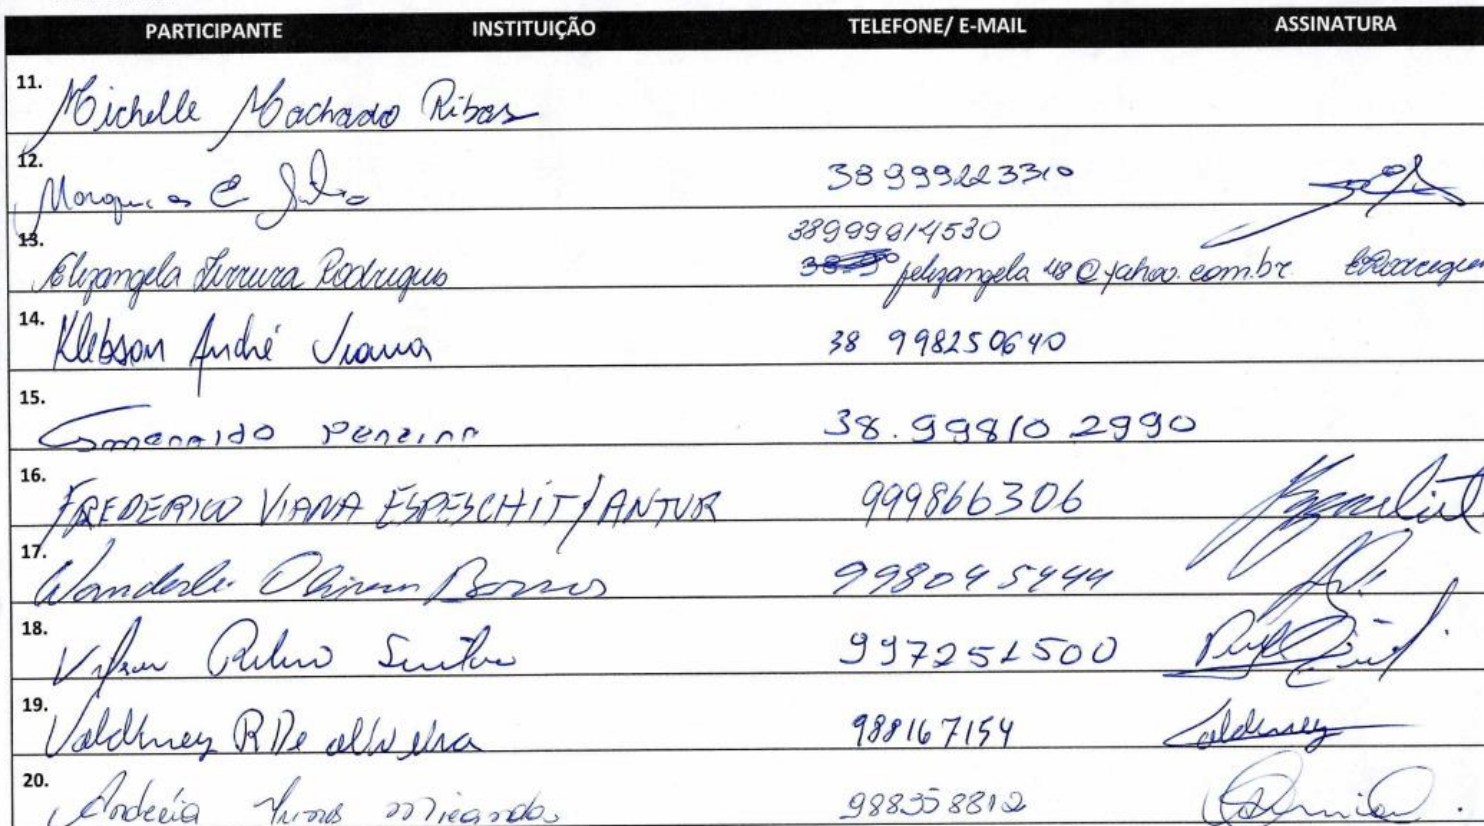 PARTICIPANTE INSTITUIÇÃO TELEFONE/ E-MAIL ASSINATURA
11. Michelle Machado Ribas
12. Marques E Silva 38 999223310
38999914530
13. Elizangela Ferreira Rodrigues jelizangela48@yahoo.com.br ERodrigues
14. Klebson André Viana 38 998250640
15. Esmeraldo Pereira 38.99810 2990
16. FREDERICO VIANA ESPESCHIT/ANTUR 999866306
17. Wanderlei Oliveira Barros 998045444
18. Ribeiro Santos 997251500
19. Valdiney R De oliveira 988167154 Valdiney
20. Andréia Miranda 988358812